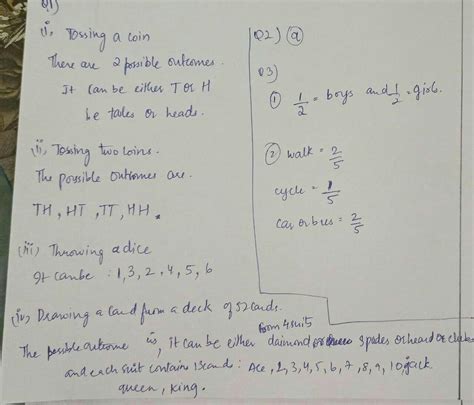 Q1)
(i, Tossing a coin
There are 2 possible outcomes.
It can be either T or H
be tales or heads.
(ii, Tossing two coins.
The possible outcomes are.
TH, HT, TT, HH.
(iii) Throwing a dice
It canbe : 1, 3, 2, 4, 5, 6
(iv) Drawing a Card from a deck of 52 cards.
The possible outcome is, it can be either daimond spades or heard or clubs
form 4 suits
and each suit contains 13 cards : Ace, 2, 3, 4, 5, 6, 7, 8, 9, 10, jack
queen, king.
Q2) a
Q3)
① 1/2 = boys and 1/2 = girls.
② walk = 2/5
cycle = 1/5
Car or bus = 2/5